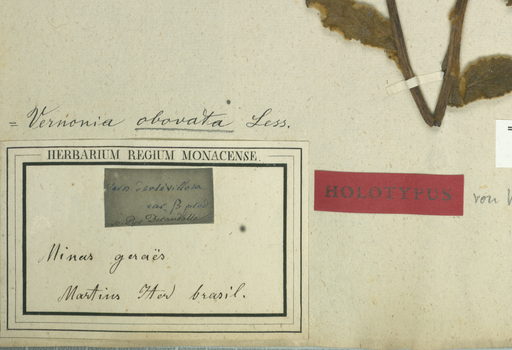 = Vernonia obovata Less.
HERBARIUM REGIUM MONACENSE.
var. β
Decandolle
Minas geraës
Martius Iter brasil.
HOLOTYPUS
von